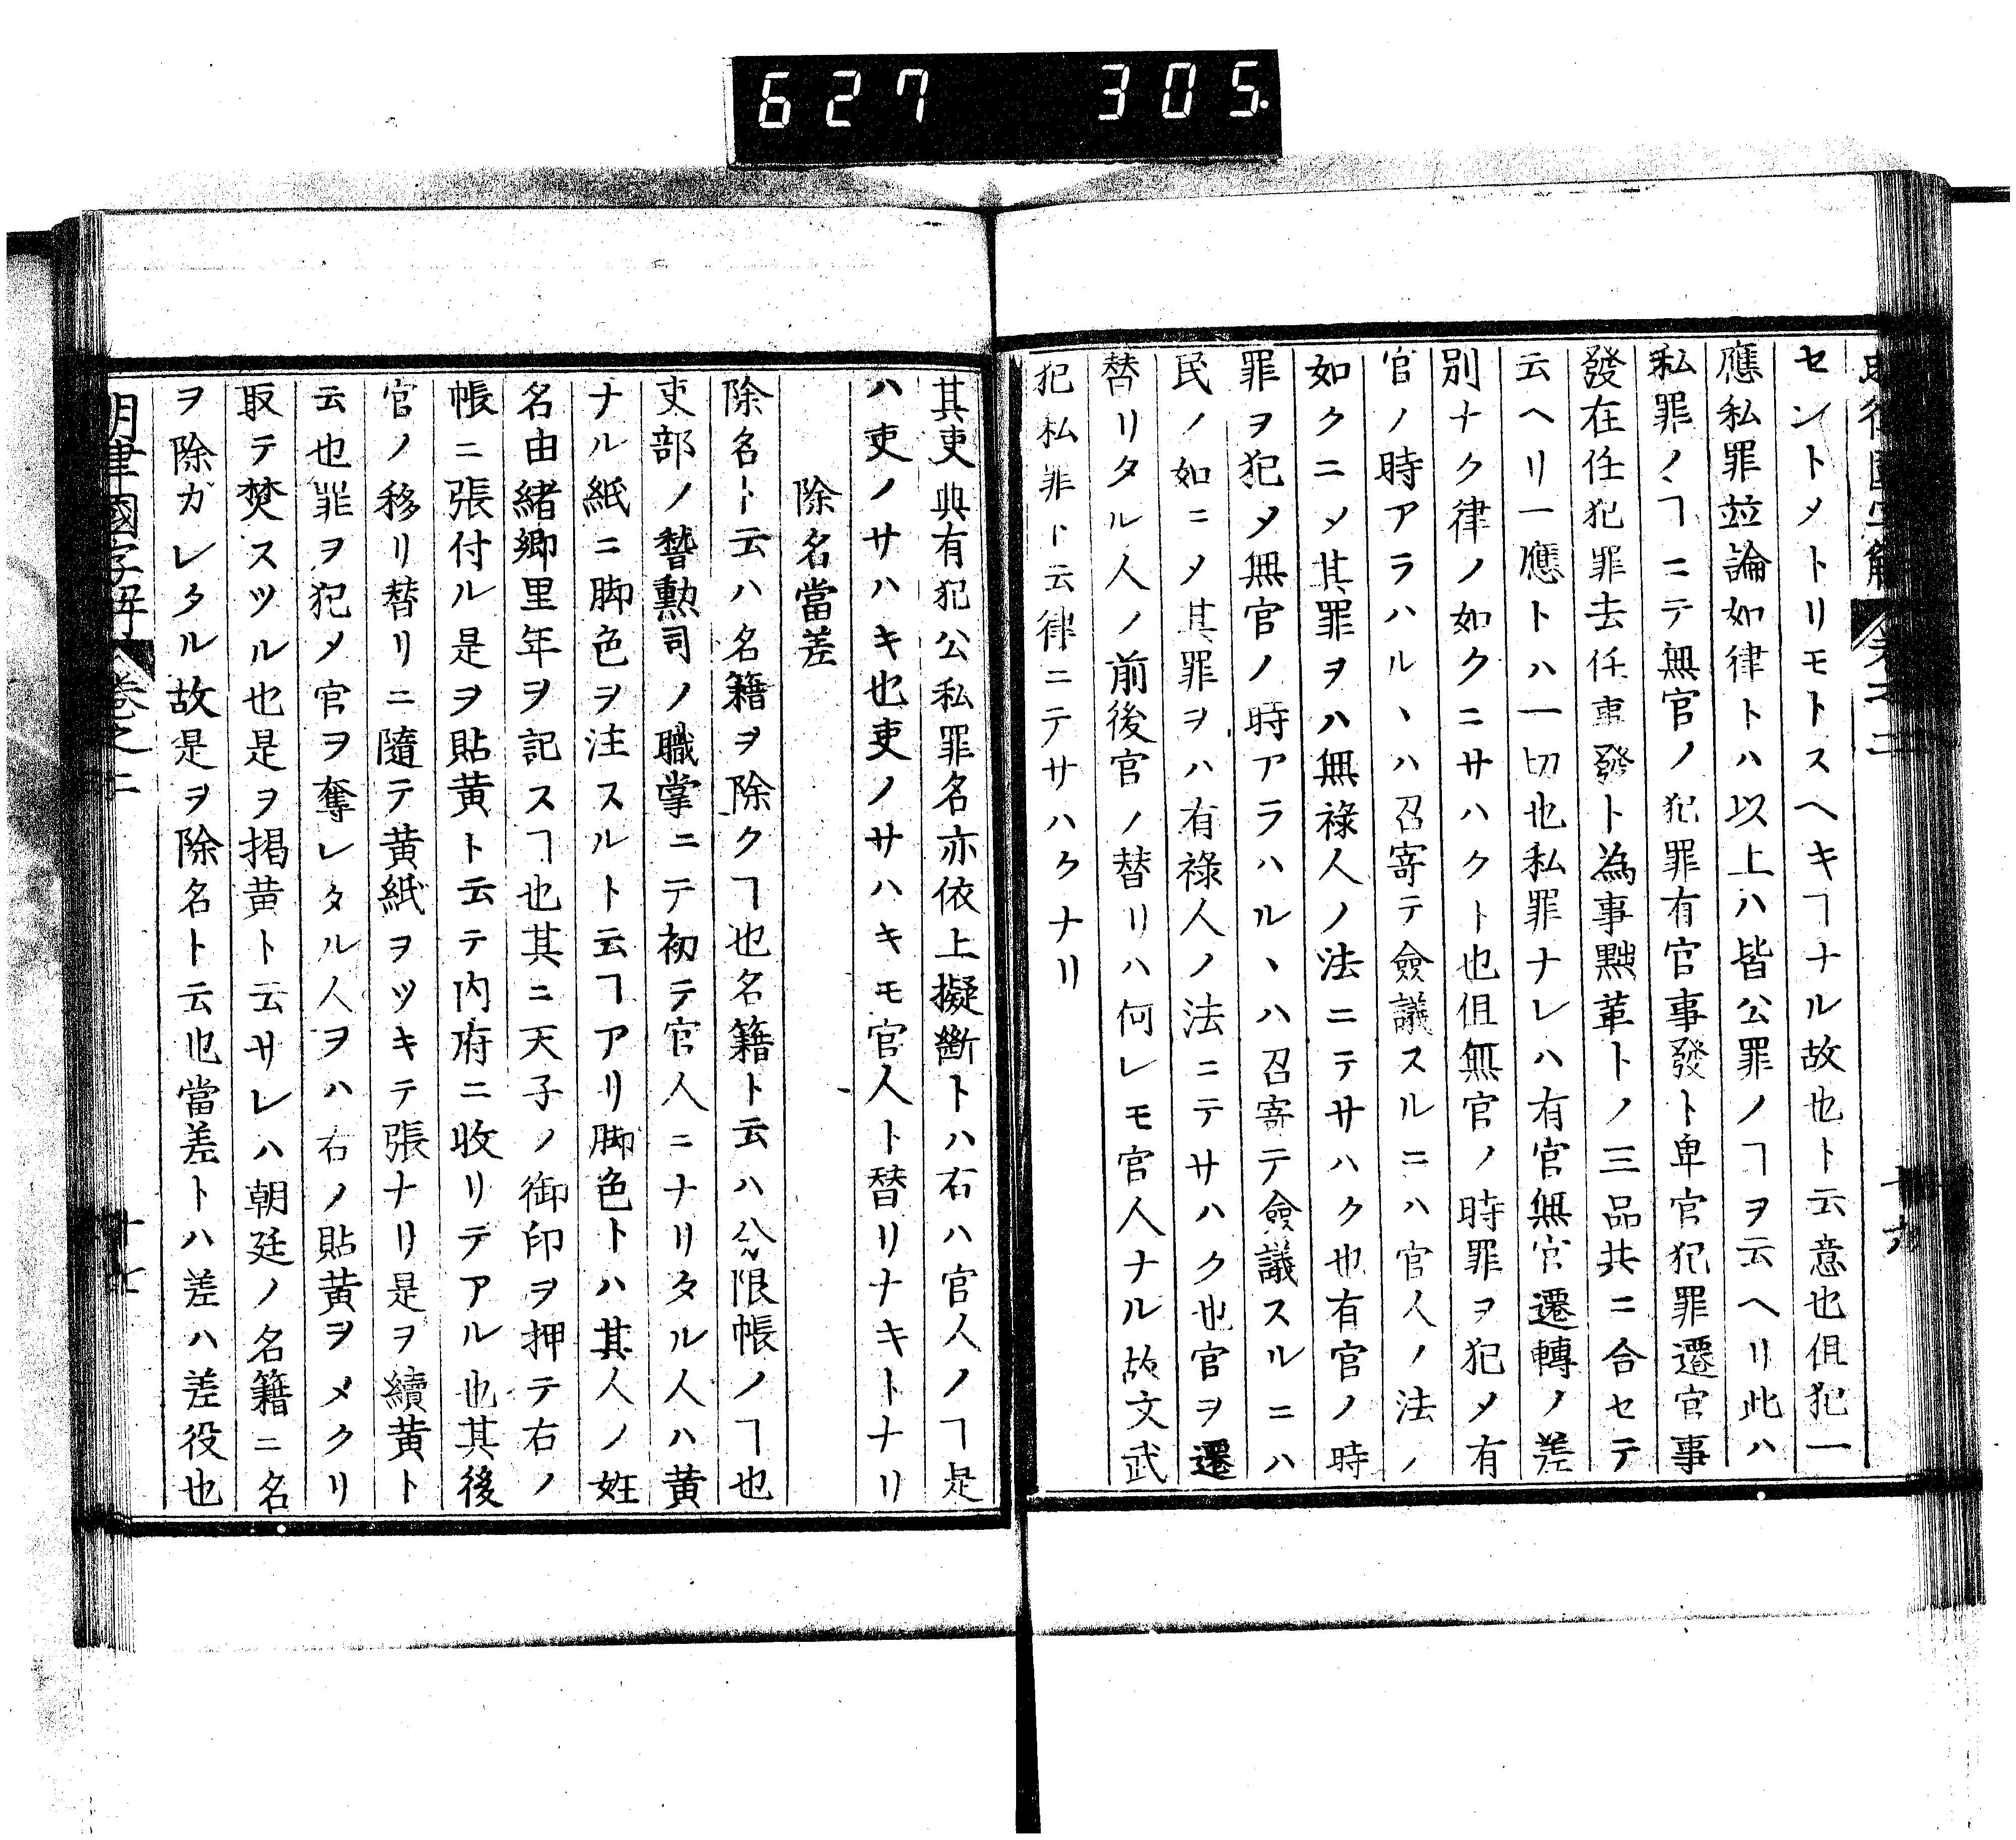 627 305
センドメトリモトスヘキヿナル故也ト云意也但犯一
應私罪並論如律トハ以上ハ皆公罪ノヿヲ云ヘリ此ハ
私罪ノヿニテ無官ノ犯罪有官事發ト卑官犯罪遷官事
發在任犯罪去任事發ト為事黜革トノ三品共ニ合セテ
云ヘリ一應トハ一切也私罪ナレハ有官無官遷轉ノ差
別ナク律ノ如クニサハクト也但無官ノ時罪ヲ犯〆有
官ノ時アラハルヽハ召寄テ僉議スルニハ官人ノ法ノ
如クニ〆其罪ヲハ無祿人ノ法ニテサハク也有官ノ時
罪ヲ犯〆無官ノ時アラハルヽハ召寄テ僉議スルニハ
民ノ如ニ〆其罪ヲハ有祿人ノ法ニテサハク也官ヲ遷
替リタル人ノ前後官ノ替リハ何レモ官人ナル故文武
犯私罪ト云律ニテサハクナリ
其吏典有犯公私罪名亦依上擬斷トハ右ハ官人ノヿ是
ハ吏ノサハキ也吏ノサハキモ官人ト替リナキトナリ
除名當差
除名ト云ハ名籍ヲ除クヿ也名籍ト云ハ分限帳ノヿ也
吏部ノ驗勲司ノ職掌ニテ初テ官人ニナリタル人ハ黄
ナル紙ニ脚色ヲ注スルト云ヿアリ脚色トハ其人ノ姓
名由緒郷里年ヲ記スヿ也其ニ天子ノ御印ヲ押テ右ノ
帳ニ張付ル是ヲ貼黄ト云テ内府ニ收リテアル也其後
官ノ移リ替リニ隨テ黄紙ヲツキテ張ナリ是ヲ續黄ト
云也罪ヲ犯〆官ヲ奪レタル人ヲハ右ノ貼黄ヲメクリ
取テ焚スツル也是ヲ掲黄ト云サレハ朝廷ノ名籍ニ名
ヲ除ガレタル故是ヲ除名ト云也當差トハ差ハ差役也
明律國字解 卷之二 十七